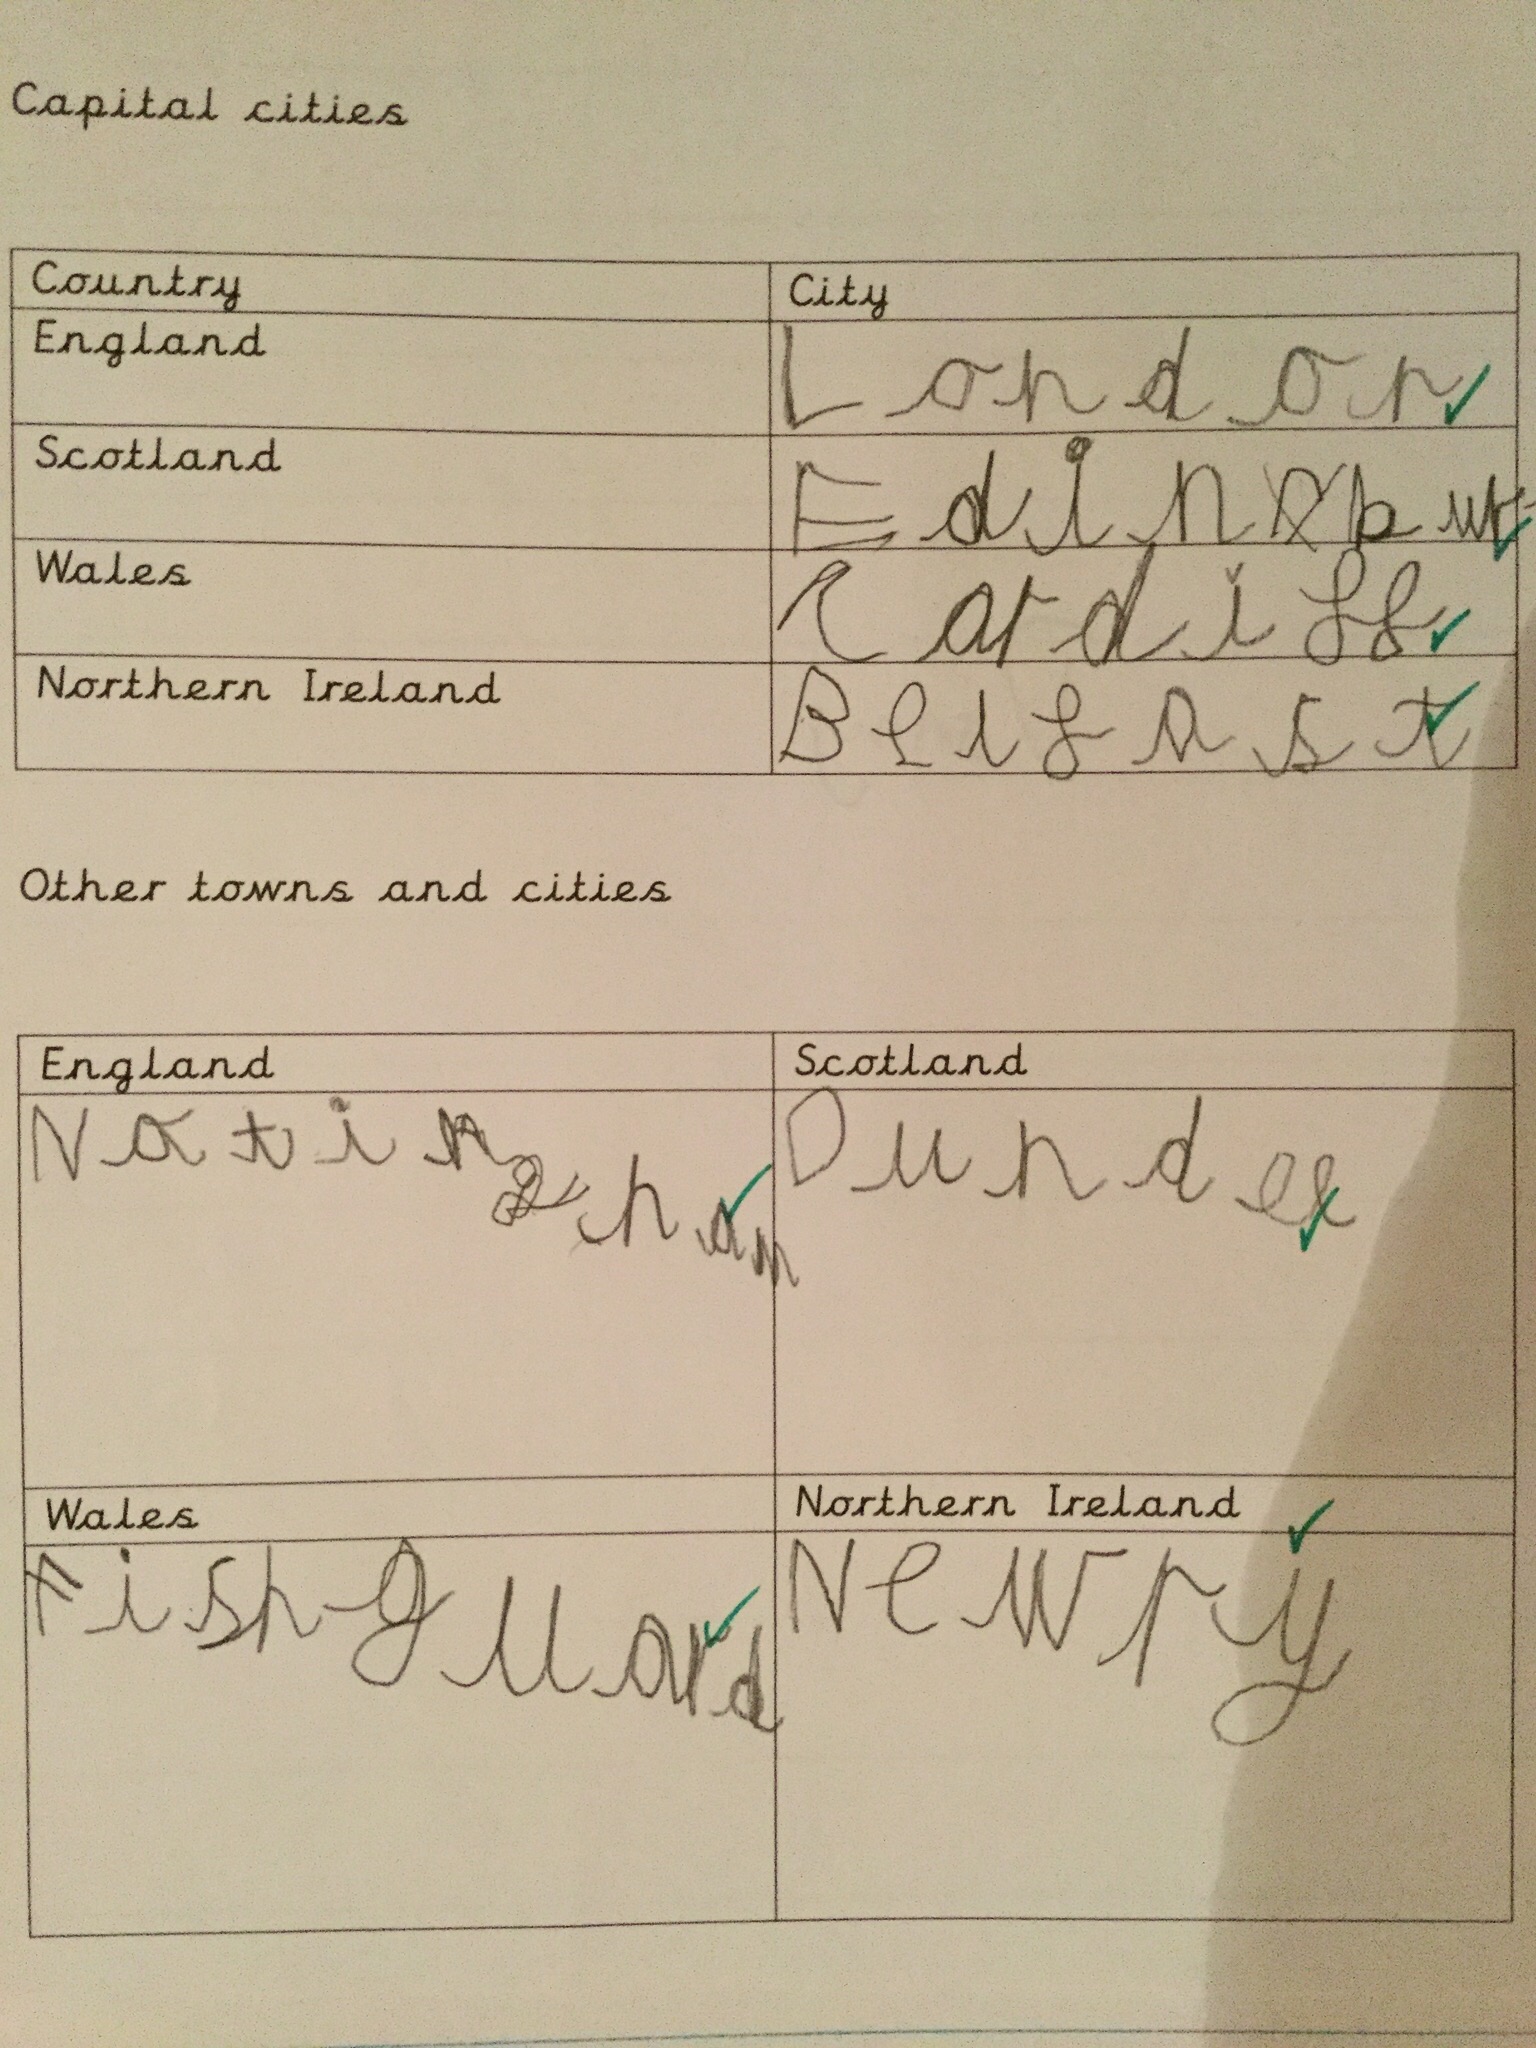 Capital cities
Country City
England London
Scotland
Wales Cardiff
Northern Ireland Belfast
Other towns and cities
England Scotland
Notingham Dundee
Wales Northern Ireland
Fishguard Newry